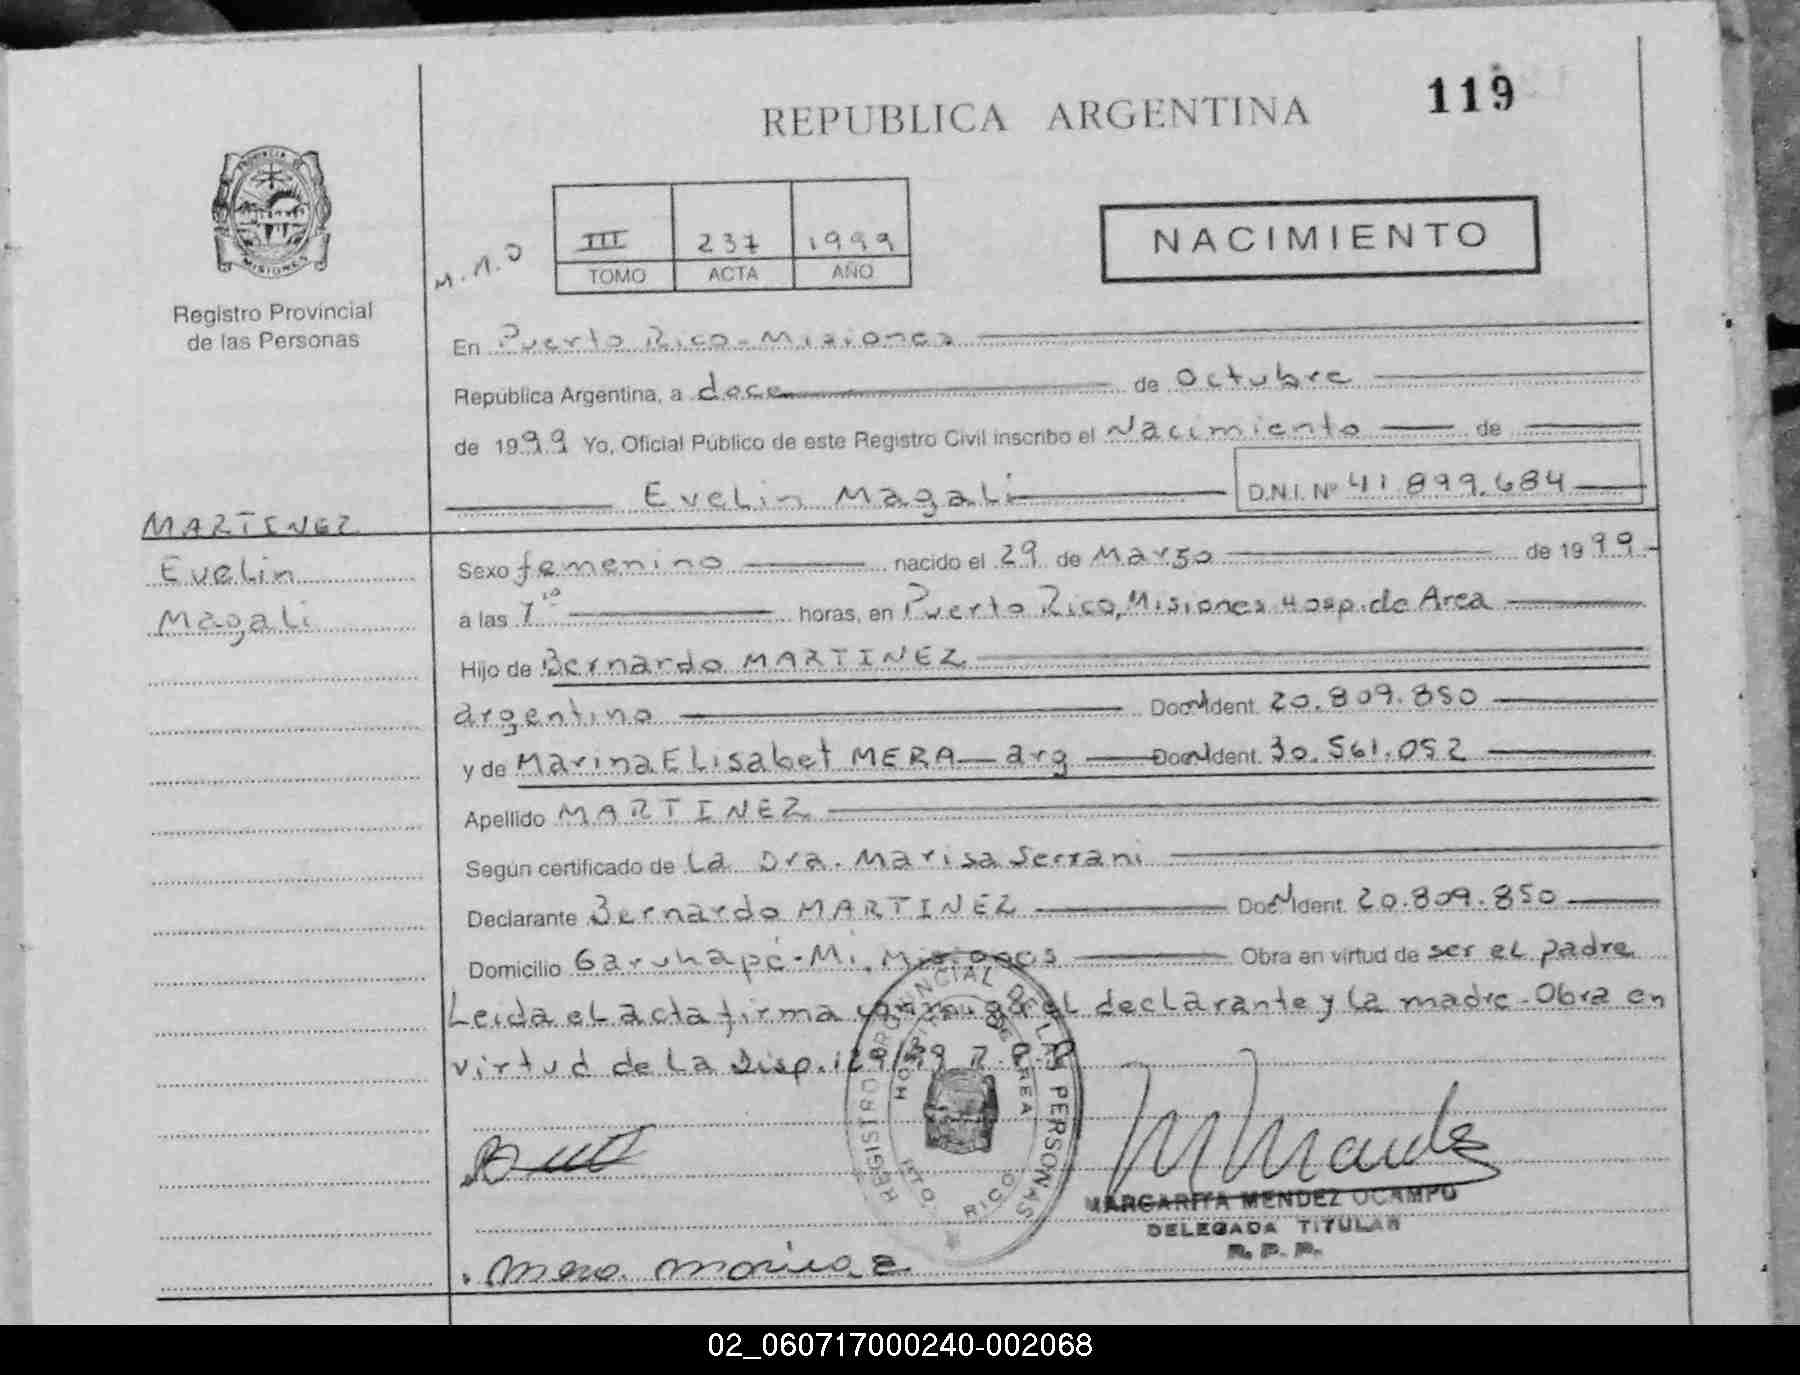 119
REPUBLICA ARGENTINA
PROVINCIA DE
MISIONES
Registro Provincial
de las Personas
M.N.O
III 237 1999
TOMO ACTA AÑO
NACIMIENTO
En Puerto Rico - Misiones
República Argentina, a doce de Octubre
de 1999 Yo, Oficial Público de este Registro Civil inscribo el Nacimiento de
Evelin Magali D.N.I. Nº 41.899.684
MARTINEZ
Evelin
Magali
Sexo femenino nacido el 29 de Marzo de 1999
a las 7 10 horas, en Puerto Rico, Misiones Hosp. de Area
Hijo de Bernardo MARTINEZ
argentino Doc. Ident. 20.809.850
y de Marina Elisabet MERA - arg Doc. Ident. 30.561.052
Apellido MARTINEZ
Según certificado de La Dra. Marisa Serrani
Declarante Bernardo MARTINEZ Doc. Ident. 20.809.850
Domicilio Garuhapé-Mi, Misiones Obra en virtud de ser el padre
Leida el acta firma conmigo el declarante y la madre - Obra en
virtud de la Disp. 129/99
REGISTRO PROVINCIAL DE LAS PERSONAS
HOSPITAL DE AREA
PTO. RICO
MARGARITA MENDEZ OCAMPO
DELEGADA TITULAR
R. P. P.
02_060717000240-002068